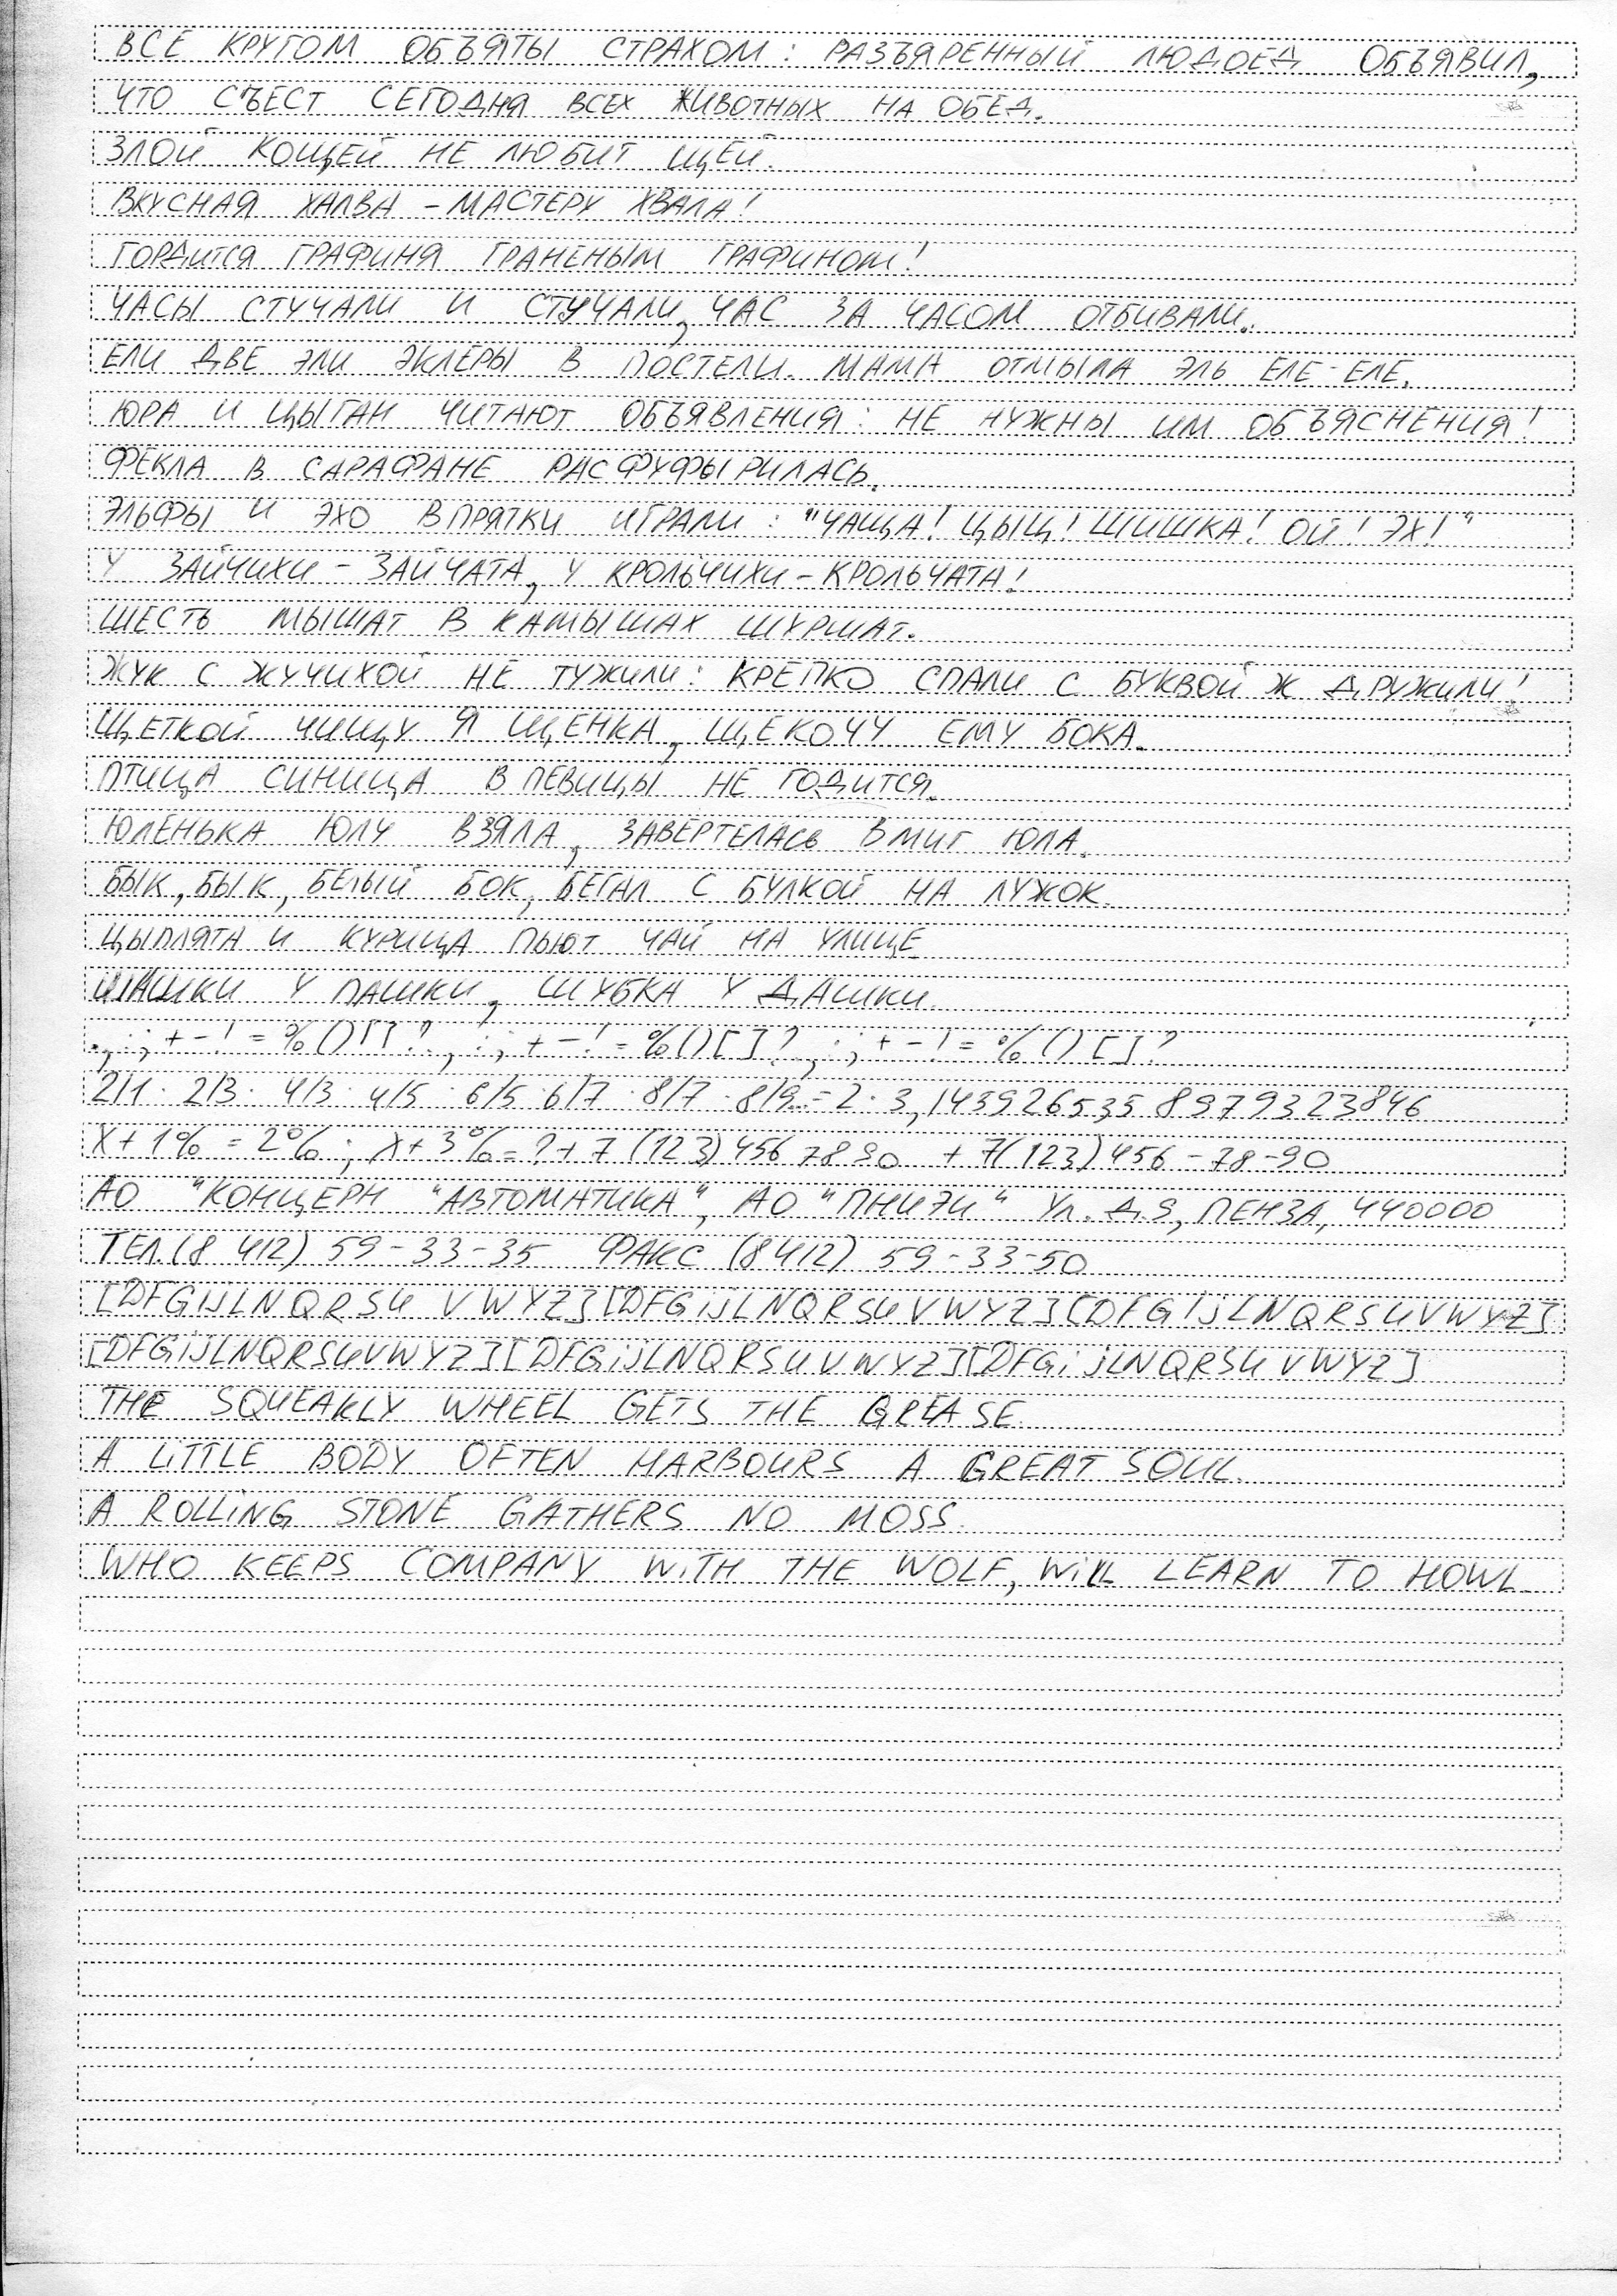 ВСЕ КРУГОМ ОБЪЯТЫ СТРАХОМ: РАЗЪЯРЕННЫЙ ЛЮДОЕД ОБЪЯВИЛ,
ЧТО СЪЕСТ СЕГОДНЯ ВСЕХ ЖИВОТНЫХ НА ОБЕД.
ЗЛОЙ КОЩЕЙ НЕ ЛЮБИТ ЩЕЙ.
ВКУСНАЯ ХАЛВА - МАСТЕРУ ХВАЛА!
ГОРДИТСЯ ГРАФИНЯ ГРАНЕНЫМ ГРАФИНОМ!
ЧАСЫ СТУЧАЛИ И СТУЧАЛИ, ЧАС ЗА ЧАСОМ ОТБИВАЛИ.
ЕЛИ ДВЕ ЭЛИ ЭКЛЕРЫ В ПОСТЕЛИ. МАМА ОТМЫЛА ЭЛЬ ЕЛЕ-ЕЛЕ.
ЮРА И ЦЫГАН ЧИТАЮТ ОБЪЯВЛЕНИЯ: НЕ НУЖНЫ ИМ ОБЪЯСНЕНИЯ!
ФЕКЛА В САРАФАНЕ РАСФУФЫРИЛАСЬ.
ЭЛЬФЫ И ЭХО В ПРЯТКИ ИГРАЛИ: "ЧАЩА! ЦЫЦ! ШИШКА! ОЙ! ЭХ!"
У ЗАЙЧИХИ - ЗАЙЧАТА, У КРОЛЬЧИХИ - КРОЛЬЧАТА!
ШЕСТЬ МЫШАТ В КАМЫШАХ ШУРШАТ.
ЖУК С ЖУЧИХОЙ НЕ ТУЖИЛИ: КРЕПКО СПАЛИ С БУКВОЙ Ж ДРУЖИЛИ!
ЩЕТКОЙ ЧИЩУ Я ЩЕНКА, ЩЕКОЧУ ЕМУ БОКА.
ПТИЦА СИНИЦА В ПЕВИЦЫ НЕ ГОДИТСЯ.
ЮЛЕНЬКА ЮЛУ ВЗЯЛА, ЗАВЕРТЕЛАСЬ ВМИГ ЮЛА.
БЫК, БЫК, БЕЛЫЙ БОК, БЕГАЛ С БУЛКОЙ НА ЛУЖОК.
ЦЫПЛЯТА И КУРИЦА ПЬЮТ ЧАЙ НА УЛИЦЕ
ШАШКИ У ПАШКИ, ШУБКА У ДАШКИ.
.,:;+-!=%()[]?.,:;+-!=%()[]?.,:;+-!=%()[]?
2/1 · 2/3 · 4/3 · 4/5 · 6/5 · 6/7 · 8/7 · 8/9..=2·3,1439265358979323846
X+1%=2%; X+3%=?+7(123)4567890 +7(123)456-78-90
АО "КОНЦЕРН "АВТОМАТИКА", АО "ПНИЭИ" УЛ. Д.9, ПЕНЗА, 440000
ТЕЛ.(8412) 59-33-35 ФАКС (8412) 59-33-50
[DFGIJLNQRSUVWYZ][DFGIJLNQRSUVWYZ][DFGIJLNQRSUVWYZ]
[DFGIJLNQRSUVWYZ][DFGIJLNQRSUVWYZ][DFGIJLNQRSUVWYZ]
THE SQUEAKLY WHEEL GETS THE GREASE.
A LITTLE BODY OFTEN HARBOURS A GREAT SOUL.
A ROLLING STONE GATHERS NO MOSS.
WHO KEEPS COMPANY WITH THE WOLF, WILL LEARN TO HOWL.